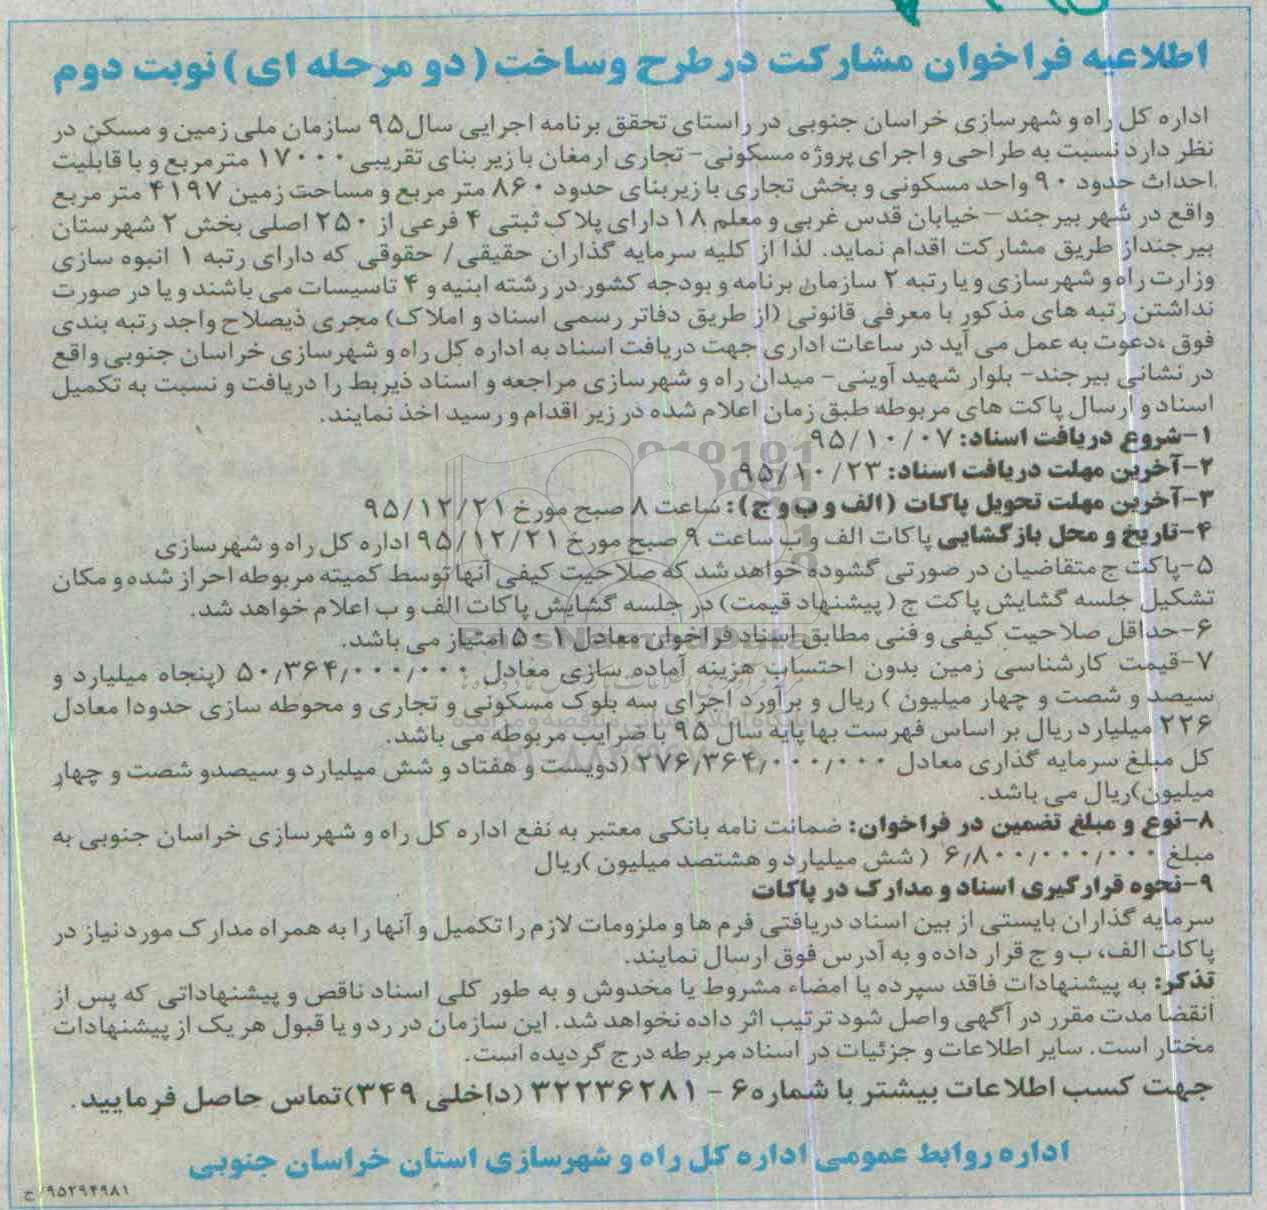 اطلاعیه فراخوان مشارکت در طرح و ساخت (دو مرحله ای) نوبت دوم
اداره کل راه و شهرسازی خراسان جنوبی در راستای تحقق برنامه اجرایی سال ۹۵ سازمان ملی زمین و مسکن در
نظر دارد نسبت به طراحی و اجرای پروژه مسکونی- تجاری ارمغان با زیر بنای تقریبی ۱۷۰۰۰ مترمربع و با قابلیت
احداث حدود ۹۰ واحد مسکونی و بخش تجاری با زیربنای حدود ۸۶۰ متر مربع و مساحت زمین ۴۱۹۷ متر مربع
واقع در شهر بیرجند – خیابان قدس غربی و معلم ۱۸ دارای پلاک ثبتی ۴ فرعی از ۲۵۰ اصلی بخش ۲ شهرستان
بیرجند از طریق مشارکت اقدام نماید. لذا از کلیه سرمایه گذاران حقیقی/ حقوقی که دارای رتبه ۱ انبوه سازی
وزارت راه و شهرسازی و یا رتبه ۲ سازمان برنامه و بودجه کشور در رشته ابنیه و ۴ تاسیسات می باشند و یا در صورت
نداشتن رتبه های مذکور با معرفی قانونی (از طریق دفاتر رسمی اسناد و املاک) مجری ذیصلاح واجد رتبه بندی
فوق ،دعوت به عمل می آید در ساعات اداری جهت دریافت اسناد به اداره کل راه و شهرسازی خراسان جنوبی واقع
در نشانی بیرجند- بلوار شهید آوینی- میدان راه و شهرسازی مراجعه و اسناد ذیربط را دریافت و نسبت به تکمیل
اسناد و ارسال پاکت های مربوطه طبق زمان اعلام شده در زیر اقدام و رسید اخذ نمایند.
۱-شروع دریافت اسناد: ۹۵/۱۰/۰۷
۲-آخرین مهلت دریافت اسناد: ۹۵/۱۰/۲۳
۳-آخرین مهلت تحویل پاکات (الف و ب و ج): ساعت ۸ صبح مورخ ۹۵/۱۲/۲۱
۴-تاریخ و محل بازگشایی پاکات الف و ب ساعت ۹ صبح مورخ ۹۵/۱۲/۲۱ اداره کل راه و شهرسازی
۵-پاکت ج متقاضیان در صورتی گشوده خواهد شد که صلاحیت کیفی آنها توسط کمیته مربوطه احراز شده و مکان
تشکیل جلسه گشایش پاکت ج (پیشنهاد قیمت) در جلسه گشایش پاکات الف و ب اعلام خواهد شد.
۶-حداقل صلاحیت کیفی و فنی مطابق اسناد فراخوان معادل ۵۰۱ امتیاز می باشد.
۷-قیمت کارشناسی زمین بدون احتساب هزینه آماده سازی معادل ۵۰/۳۶۴/۰۰۰/۰۰۰ (پنجاه میلیارد و
سیصد و شصت و چهار میلیون ) ریال و برآورد اجرای سه بلوک مسکونی و تجاری و محوطه سازی حدودا معادل
۲۲۶ میلیارد ریال بر اساس فهرست بها پایه سال ۹۵ با ضرایب مربوطه می باشد.
کل مبلغ سرمایه گذاری معادل ۲۷۶/۳۶۴/۰۰۰/۰۰۰ (دویست و هفتاد و شش میلیارد و سیصدو شصت و چهار
میلیون)ریال می باشد.
۸-نوع و مبلغ تضمین در فراخوان: ضمانت نامه بانکی معتبر به نفع اداره کل راه و شهرسازی خراسان جنوبی به
مبلغ ۶/۸۰۰/۰۰۰/۰۰۰ (شش میلیارد و هشتصد میلیون )ریال
۹-نحوه قرارگیری اسناد و مدارک در پاکات
سرمایه گذاران بایستی از بین اسناد دریافتی فرم ها و ملزومات لازم را تکمیل و آنها را به همراه مدارک مورد نیاز در
پاکات الف، ب و ج قرار داده و به آدرس فوق ارسال نمایند.
تذکر: به پیشنهادات فاقد سپرده یا امضاء مشروط یا مخدوش و به طور کلی اسناد ناقص و پیشنهاداتی که پس از
انقضا مدت مقرر در آگهی واصل شود ترتیب اثر داده نخواهد شد. این سازمان در رد و یا قبول هر یک از پیشنهادات
مختار است. سایر اطلاعات و جزئیات در اسناد مربرطه درج گردیده است.
جهت کسب اطلاعات بیشتر با شماره ۶ - ۳۲۲۳۶۲۸۱ (داخلی ۳۴۹) تماس حاصل فرمایید.
اداره روابط عمومی اداره کل راه و شهرسازی استان خراسان جنوبی
۹۵۲۹۴۹۸۱/ ج